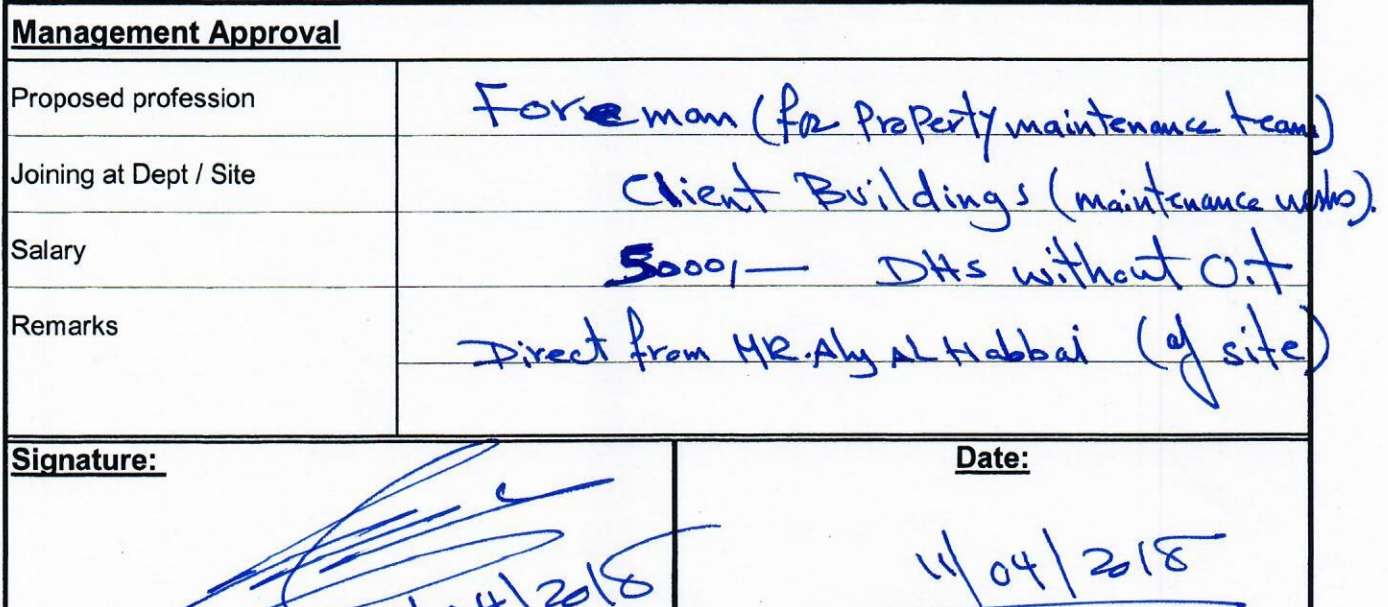 Management Approval
Proposed profession Foreman (for Property maintenance team)
Joining at Dept / Site Client Buildings (maintenance works).
Salary 5000/— DHs without O.t
Remarks Direct from MR. Aly AL Habbai (of site)
Signature: Date:
11/04/2018
/04/2018